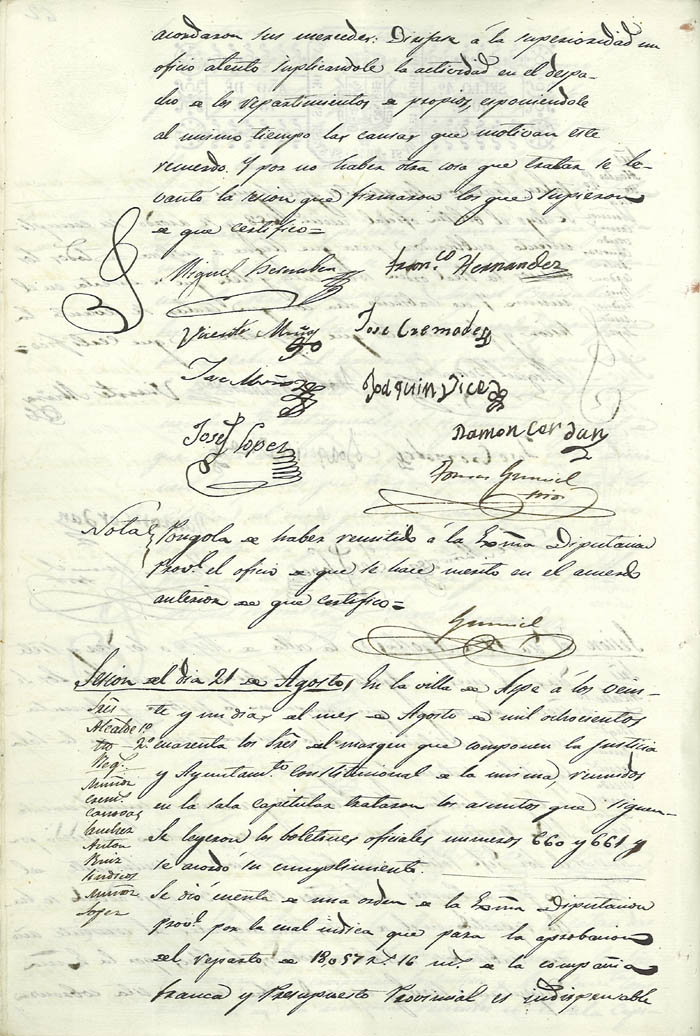 acordaron sus mercedes: Dirijase á la superioridad un
oficio atento suplicandole la actividad en el despa-
cho de los repartimientos de propios, esponiendole
al mismo tiempo las causas que motivan este
recuerdo. Y por no haber otra cosa que tratar se le-
vantó la sesion que firmaron los que supieron
de que certifico=
Miguel
Franco Hernandez
Vicente Muñoz
Jose Cremades
Jose Muñoz
Joaquin Vicedo
Josef Lopez
Ramon Cerdan
Tomas Gumiel
srio
Nota
Pongola de haber remitido á la Exma Diputacion
Provl el oficio de que se hace merito en el acuerdo
anterior de que certifico=
Gumiel
Sesion del dia 21 de Agosto,
En la villa de Aspe á los vein-
te y un dias del mes de Agosto de mil ochocientos
cuarenta los Sres del margen que componen la Justicia
y Ayuntamto Constitucional de la misma, reunidos
en la sala capitular trataron los asuntos que siguen=
Sres
Alcalde 1º
2º
Reg.
Muñoz
Crem.
Sanchez
Anton
Ruiz
Sindicos
Muñoz
Lopez
Se leyeron los boletines oficiales numeros 660 y 661 y
se acordó su cumplimiento.
Se dió cuenta de una orden de la Exma Diputacion
Provl por la cual indica que para la aprobacion
del reparto de 18,057 r. 16 ms. de la compañia
franca y Presupuesto Provincial es indispensable